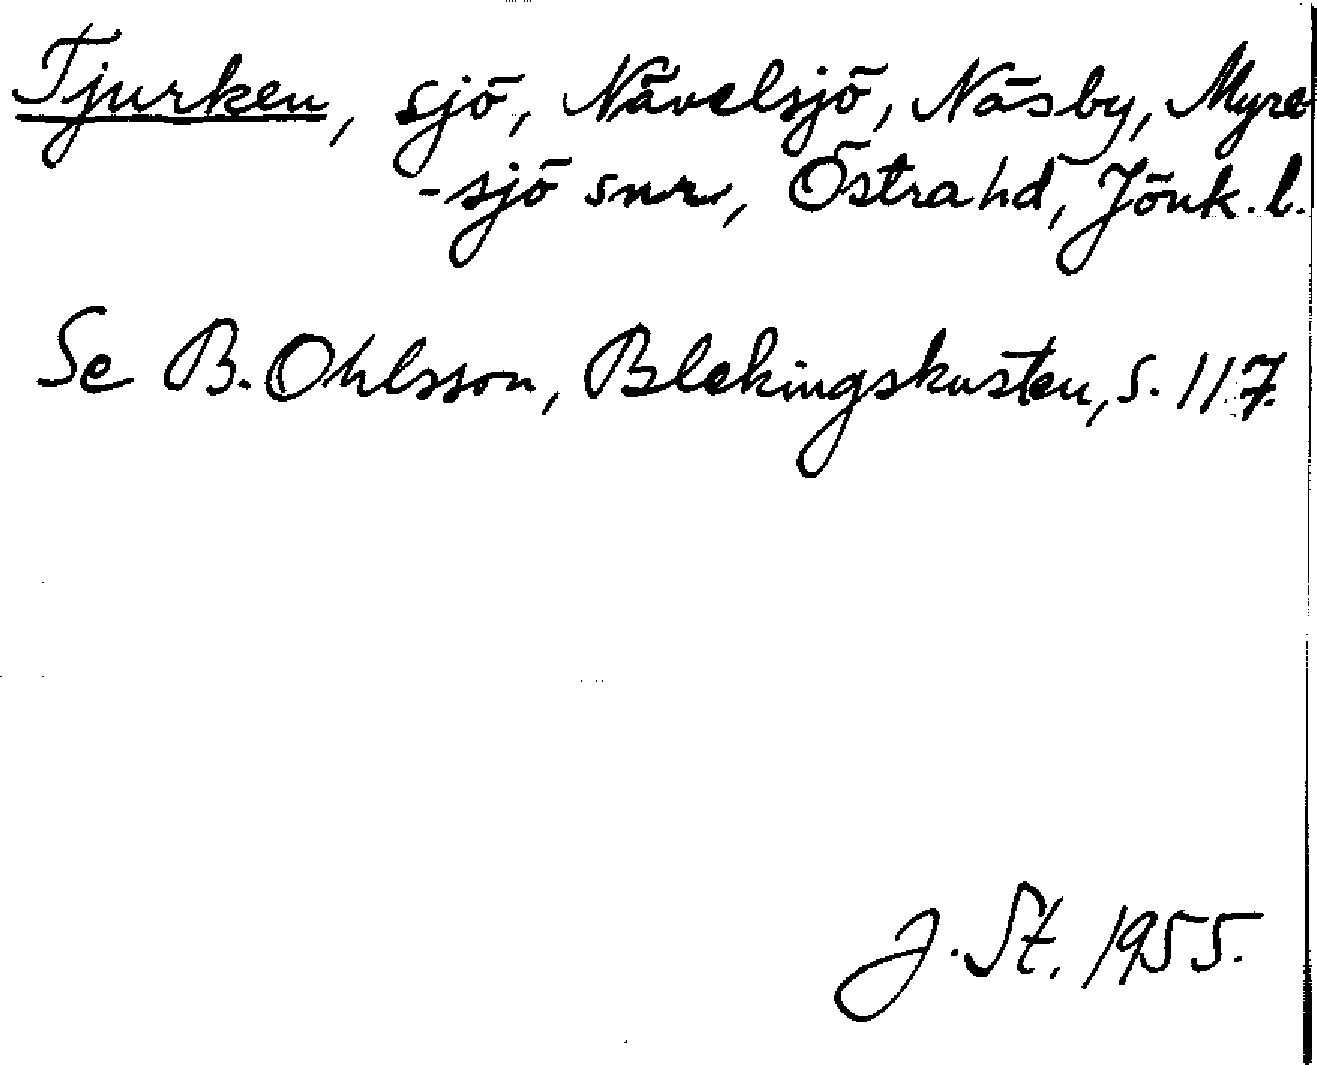 Tjurken, sjö, Nävelsjö, Näsby, Myre
-sjö snr, Östra hd, Jönk. l.
Se B. Ohlsson, Blekingskusten, s. 117.
J. St. 1955.